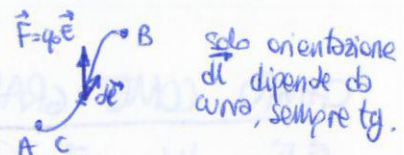 F⃗=q₀E⃗
B
dl⃗
A C
solo orientazione
dl⃗ dipende da
curva, sempre tg.